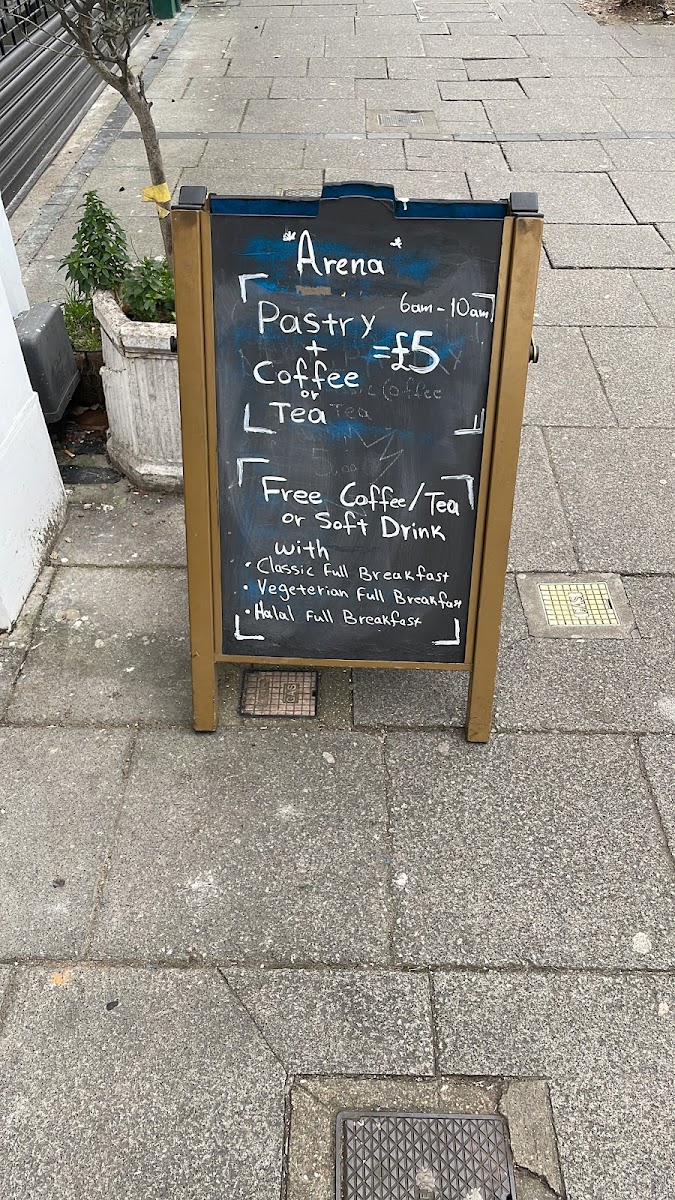 "Arena"
6am - 10am
Pastry
+
Coffee
or
Tea
=£5
Tea
Free Coffee/Tea
or Soft Drink
with
• Classic Full Breakfast
• Vegeterian Full Breakfast
• Halal Full Breakfast